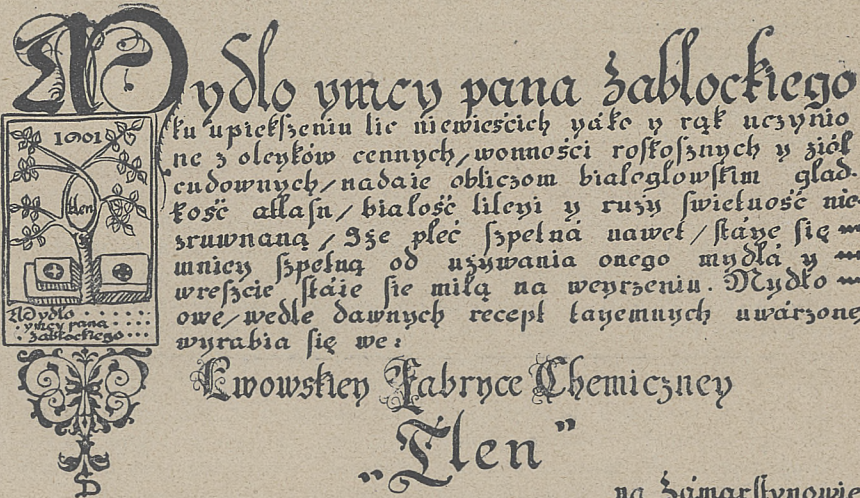 Mydlo ymcy pana Zablockiego
ku upiększeniu lic niewieścich yako y rąk uczynio
ne z oleyków cennych, wonności roskosznych y ziół
cudownych, nadaie obliczom bialoglowskim glad-
kość atlasu, bialość lileyi y ruży swietność nie
zruwnaną, Sże pleć szpetná nawet, stáye się
mniey szpetną od używania onego mydlá y
wreszcie stáie sie milą na weyrzeniu. Mydlo
owe, wedle dawnych recept tayemnych uwárzone
wyrabia się we:
Lwowskiey Fabryce Chemiczney
„Tlen”
na Zámarstynowie
1901
tlen
Mydlo
ymcy pana
Zablockiego